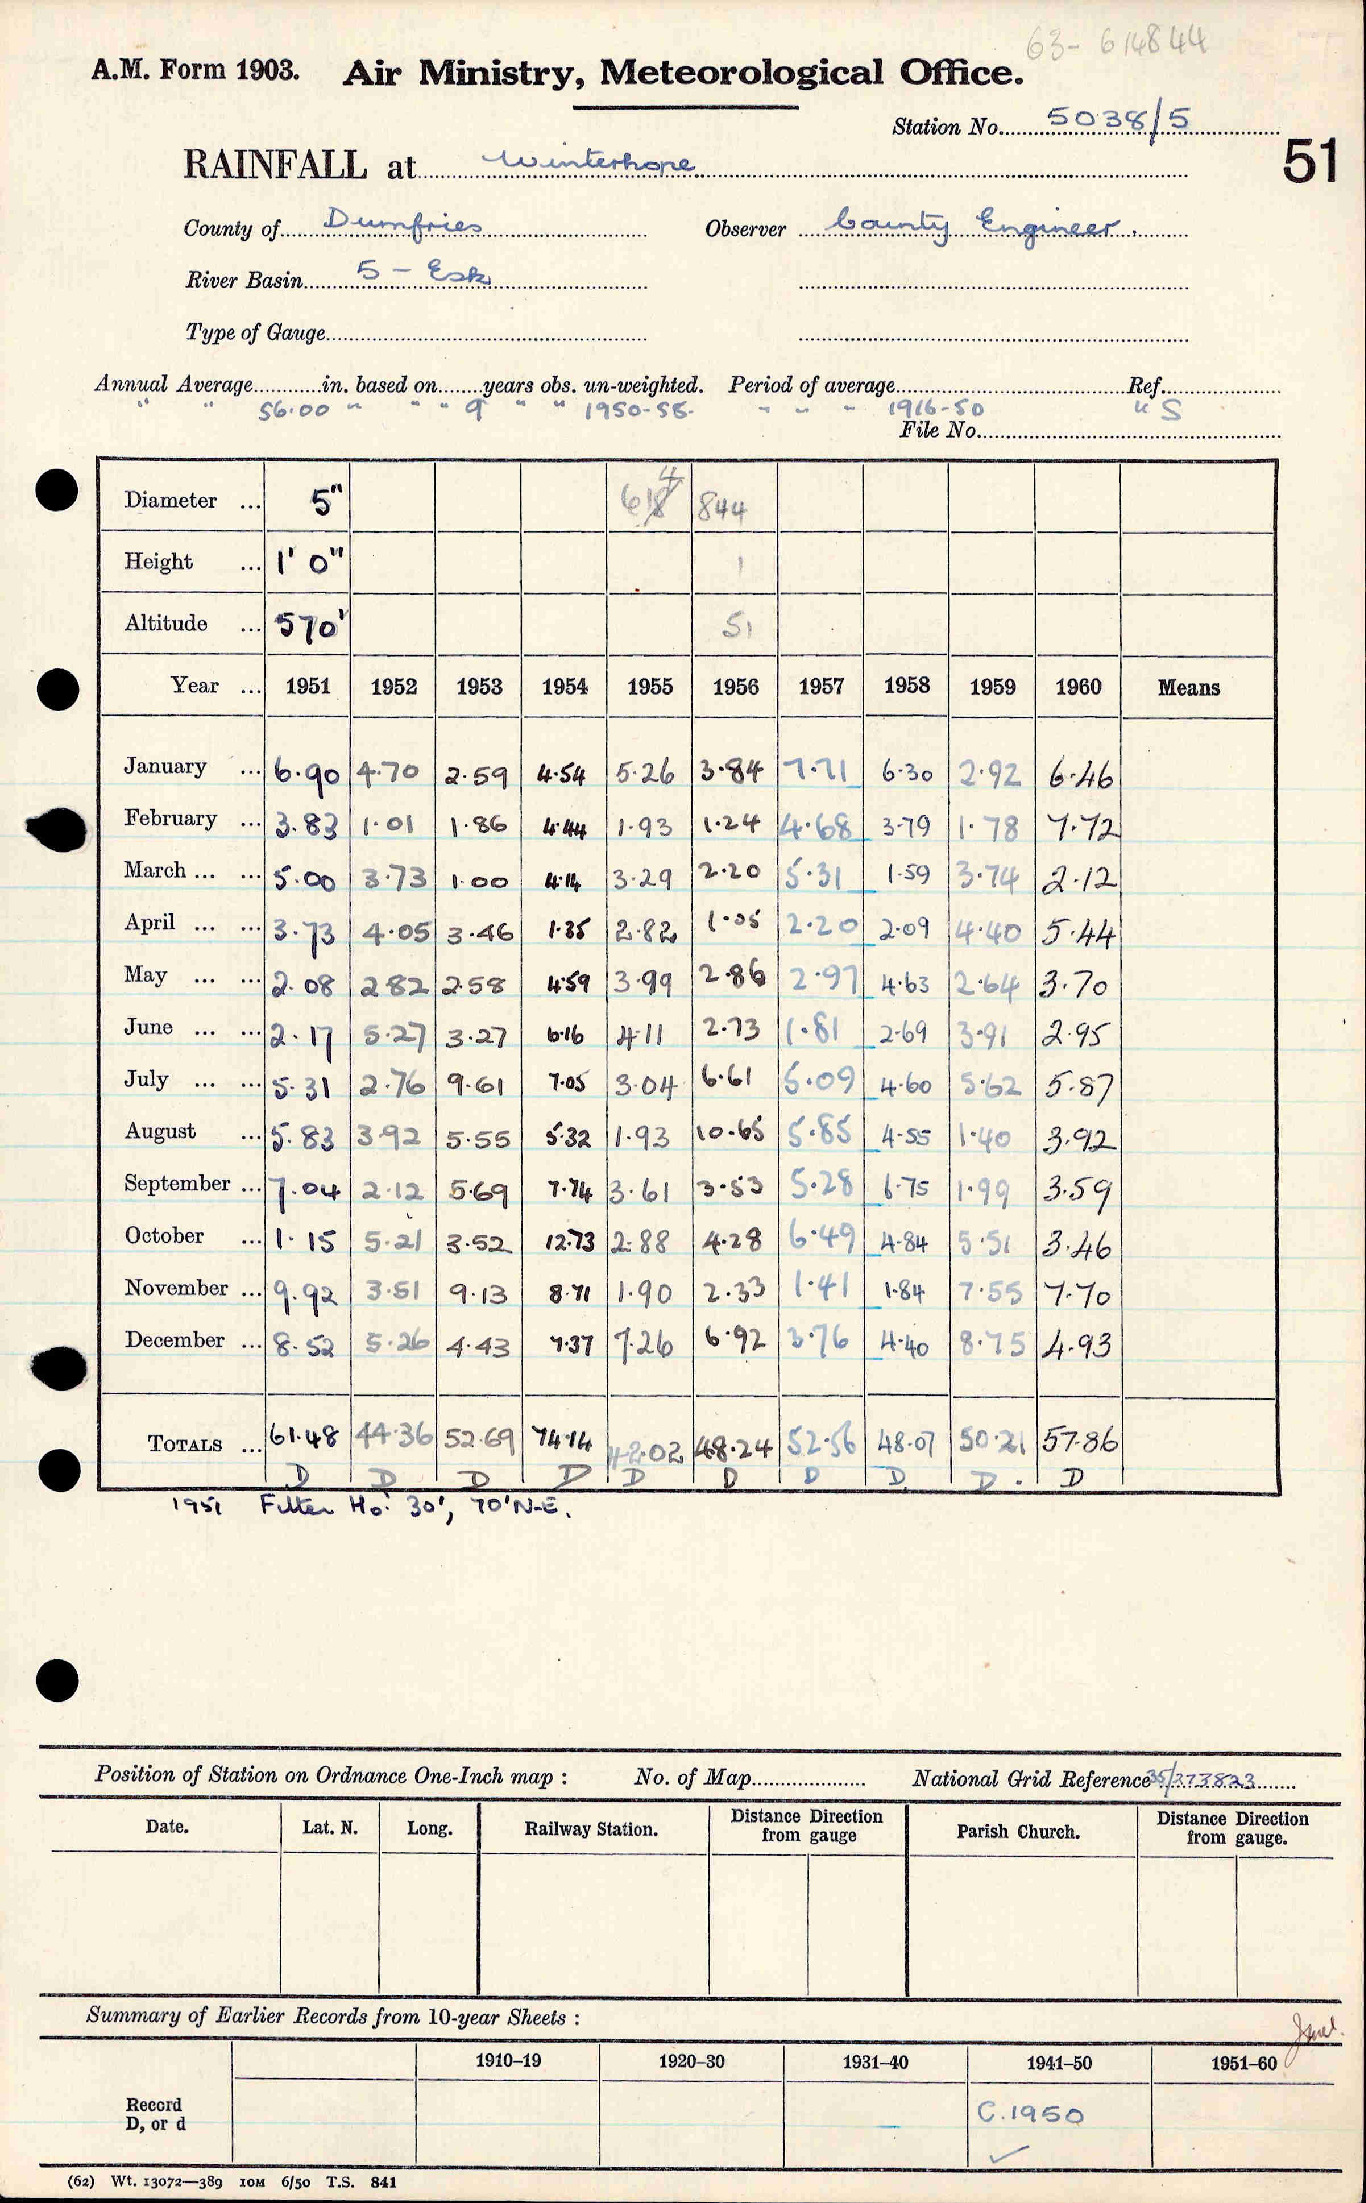 63-614844
A.M. Form 1903. Air Ministry, Meteorological Office.
Station No. 5038/5
51
RAINFALL at Winterhope
County of Dumfries Observer County Engineer.
River Basin 5 - Esk
Type of Gauge
Annual Average in. based on years obs. un-weighted. Period of average Ref.
" " 56.00 " " " 9 " " 1950-58. " " " 1916-50 " S
File No.
Diameter ... 5" 618 4 844
Height ... 1' 0" 1
Altitude ... 570' 51
Year ... 1951 1952 1953 1954 1955 1956 1957 1958 1959 1960 Means
January ... 6.90 4.70 2.59 4.54 5.26 3.84 7.71 6.30 2.92 6.46
February ... 3.83 1.01 1.86 4.44 1.93 1.24 4.68 3.79 1.78 7.72
March ... ... 5.00 3.73 1.00 4.14 3.29 2.20 5.31 1.59 3.74 2.12
April ... ... 3.73 4.05 3.46 1.35 2.82 1.05 2.20 2.09 4.40 5.44
May ... ... 2.08 2.82 2.58 4.59 3.99 2.86 2.97 4.63 2.64 3.70
June ... ... 2.17 5.27 3.27 6.16 4.11 2.73 1.81 2.69 3.91 2.95
July ... ... 5.31 2.76 9.61 7.05 3.04 6.61 5.09 4.60 5.62 5.87
August ... 5.83 3.92 5.55 5.32 1.93 10.65 5.85 4.55 1.40 3.92
September ... 7.04 2.12 5.69 7.74 3.61 3.53 5.28 6.75 1.99 3.59
October ... 1.15 5.21 3.52 12.73 2.88 4.28 6.49 4.84 5.51 3.46
November ... 9.92 3.51 9.13 8.71 1.90 2.33 1.41 1.84 7.55 7.70
December ... 8.52 5.26 4.43 7.37 7.26 6.92 3.76 4.40 8.75 4.93
TOTALS ... 61.48 44.36 52.69 74.14 42.02 48.24 52.56 48.07 50.21 57.86
D D D D D D D D D. D
1951 Filter Ho: 30', 70'N-E.
Position of Station on Ordnance One-Inch map : No. of Map National Grid Reference 35/373823
Date. Lat. N. Long. Railway Station. Distance Direction from gauge Parish Church. Distance Direction from gauge.
Summary of Earlier Records from 10-year Sheets :
1910–19 1920–30 1931–40 1941–50 1951–60
Record
D, or d
C.1950
(62) Wt. 13072—389 10M 6/50 T.S. 841